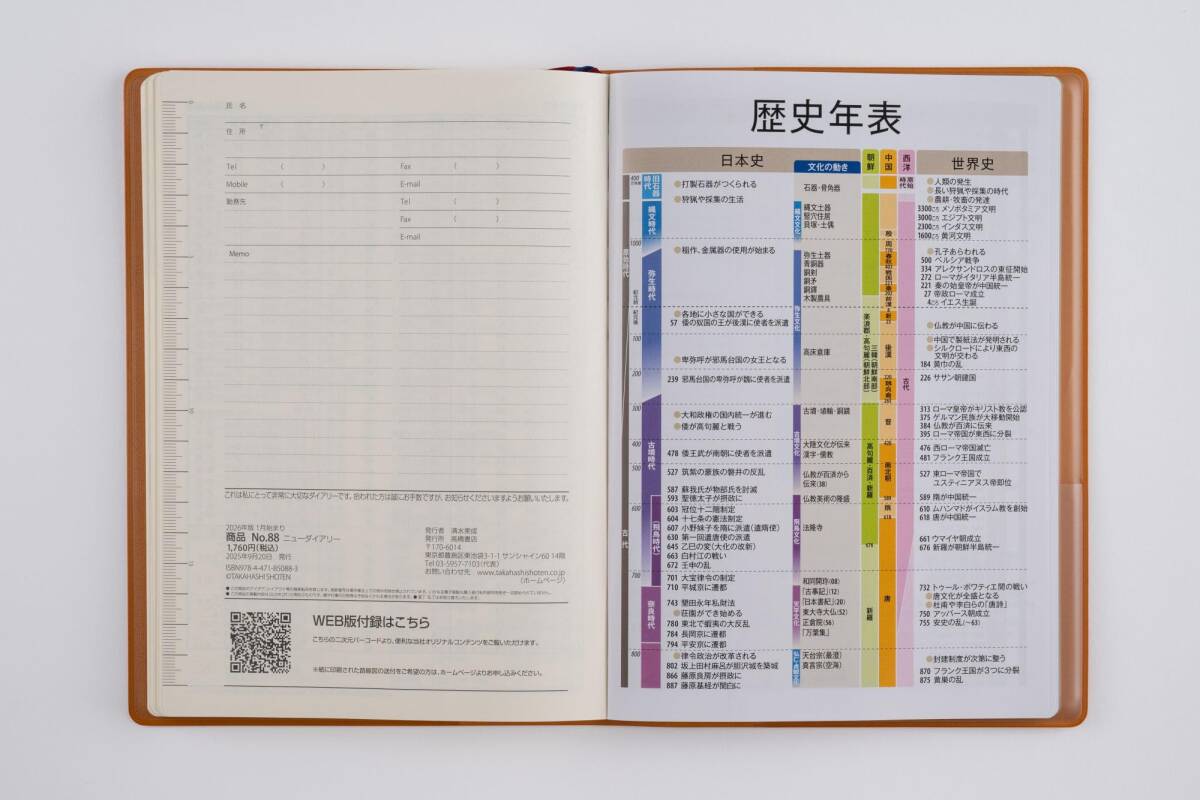 氏 名
〒
住 所
Tel ( ) Fax ( )
Mobile ( ) E-mail
勤務先 Tel ( )
Fax ( )
E-mail
Memo
これは私にとって非常に大切なダイアリーです。拾われた方は誠にお手数ですが、お知らせくださいますようお願いします。
2026年版 1月始まり
商品 No.88 ニューダイアリー
1,760円(税込)
2025年9月20日 発行
ISBN978-4-471-85088-3
©TAKAHASHI SHOTEN
発行者 清水美成
発行所 高橋書店
〒170-6014
東京都豊島区東池袋3-1-1 サンシャイン60 14階
Tel 03-5957-7103(代表)
お問い合わせ先 www.takahashishoten.co.jp
(ホームページ)
WEB版付録はこちら
こちらの二次元バーコードより、便利な当社オリジナルコンテンツをご覧いただけます。
※紙に印刷された路線図の送付をご希望の方は、ホームページよりお申し込みください。
歴史年表
日本史 文化の動き 朝鮮 中国 西洋 世界史
旧石器時代
縄文時代
弥生時代
古墳時代
(飛鳥時代)
奈良時代
400
1000
紀元前
紀元後
100
200
300
400
500
600
700
800
古代
●打製石器がつくられる
●狩猟や採集の生活
●稲作、金属器の使用が始まる
●各地に小さな国ができる
57 倭の奴国の王が後漢に使者を派遣
●卑弥呼が邪馬台国の女王となる
239 邪馬台国の卑弥呼が魏に使者を派遣
●大和政権の国内統一が進む
●倭が高句麗と戦う
478 倭王武が南朝に使者を派遣
527 筑紫の豪族の磐井の反乱
587 蘇我氏が物部氏を討滅
593 聖徳太子が摂政に
603 冠位十二階制定
604 十七条の憲法制定
607 小野妹子を隋に派遣(遣隋使)
630 第一回遣唐使の派遣
645 乙巳の変(大化の改新)
663 白村江の戦い
672 壬申の乱
701 大宝律令の制定
710 平城京に遷都
743 墾田永年私財法
●荘園ができ始める
780 東北で蝦夷の大反乱
784 長岡京に遷都
794 平安京に遷都
●律令政治が改革される
802 坂上田村麻呂が胆沢城を築城
866 藤原良房が摂政に
887 藤原基経が関白に
石器・骨角器
縄文文化
縄文土器
竪穴住居
貝塚・土偶
弥生文化
弥生土器
青銅器
銅剣
銅矛
銅鐸
木製農具
高床倉庫
古墳文化
古墳・埴輪・銅鏡
大陸文化が伝来
漢字・儒教
仏教が百済から
伝来(38)
仏教美術の隆盛
飛鳥文化
法隆寺
天平文化
和同開珎(08)
「古事記」(12)
「日本書紀」(20)
東大寺大仏(52)
正倉院(56)
「万葉集」
天台宗(最澄)
真言宗(空海)
楽浪郡・高句麗(朝鮮北部)
三韓(朝鮮南部)
高句麗・百済・新羅
676
新羅
殷
周
春秋
戦国
前漢
新
後漢
220
晋
420
南北朝
589
隋
618
唐
原始時代
古代
●人類の発生
●長い狩猟や採集の時代
●農耕・牧畜の発達
3300ごろ メソポタミア文明
3000ごろ エジプト文明
2300ごろ インダス文明
1600ごろ 黄河文明
●孔子あらわれる
500 ペルシア戦争
334 アレクサンドロスの東征開始
272 ローマがイタリア半島統一
221 秦の始皇帝が中国統一
27 帝政ローマ成立
4ごろ イエス生誕
●仏教が中国に伝わる
●中国で製紙法が発明される
●シルクロードにより東西の
文明が交わる
184 黄巾の乱
226 ササン朝建国
313 ローマ皇帝がキリスト教を公認
375 ゲルマン民族が大移動開始
384 仏教が百済に伝来
395 ローマ帝国が東西に分裂
476 西ローマ帝国滅亡
481 フランク王国成立
527 東ローマ帝国で
ユスティニアヌス帝即位
589 隋が中国統一
610 ムハンマドがイスラム教を創始
618 唐が中国統一
661 ウマイヤ朝成立
676 新羅が朝鮮半島統一
732 トゥール・ポワティエ間の戦い
●唐文化が全盛となる
●杜甫や李白らの「唐詩」
750 アッバース朝成立
755 安史の乱(~63)
●封建制度が次第に整う
870 フランク王国が3つに分裂
875 黄巣の乱